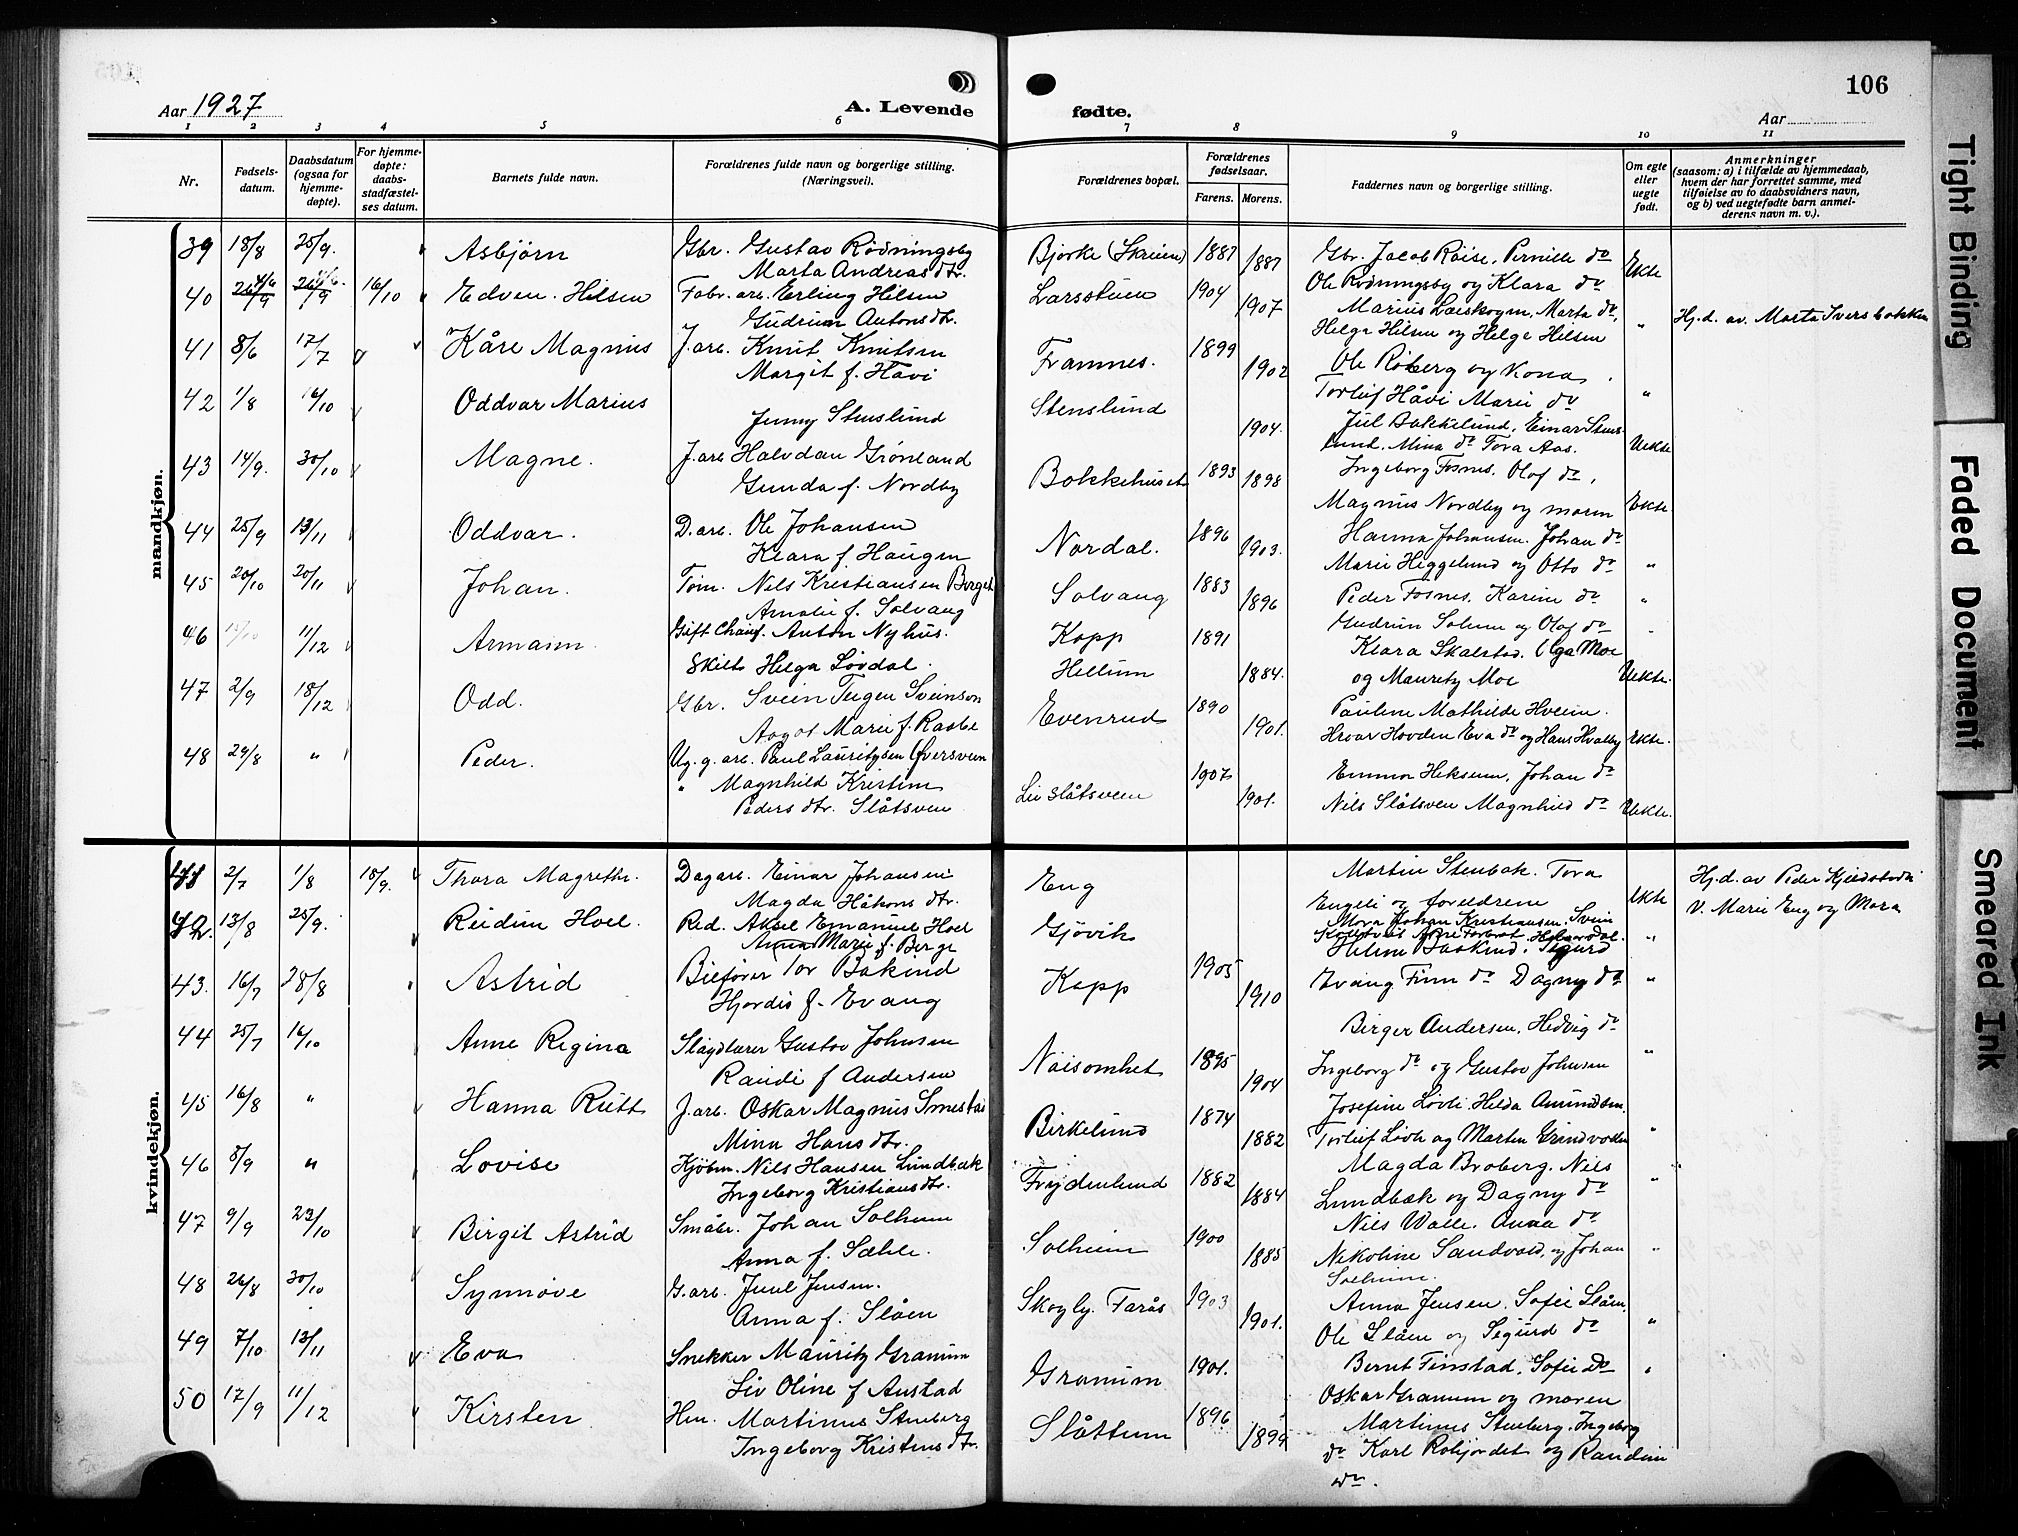 106
Aar 1927
A. Levende
fødte.
Aar
1 2 3 4 5 6 7 8 9 10 11
Nr.
Fødsels-
datum.
Daabsdatum
(ogsaa for
hjemme-
døpte).
For hjemme-
døpte:
daabs-
stadfæstel-
ses datum.
Barnets fulde navn.
Forældrenes fulde navn og borgerlige stilling.
(Næringsvei).
Forældrenes bopæl.
Forældrenes
fødselsaar.
Farens. Morens.
Faddernes navn og borgerlige stilling.
Om egte
eller
uegte
født.
Anmerkninger
(saasom: a) i tilfælde av hjemmedaab,
hvem der har forrettet samme, med
tilføielse av to daabsvidners navn,
og b) ved uegtefødte barn anmel-
derens navn m. v.).
mandkjøn.
39 18/8 25/9. Asbjörn Gbr. Gustav Rødningsby Bjørke (Skrein) 1887 Gbr. Jacob Røise, Pernille do
Marta Andreasdtr. 1887 Ole Rødningsby og Klara do Ekte
40 16/10 Edven. Hilsen Fabr. arb. Erling Hilsen Larsstuen 1904 Marius Læiskogen, Marta do,
Gudrun Antonsdtr. 1907 Helga Hilsen og Helge Hilsen " Hj.d. av. Marta Iversbakken
41 8/6 17/7 Kåre Magnus J.arb. Knut Knutsen Framnes. 1899 Ole Røberg og Kona,
Margit f. Håvi 1902 Torleif Håvi Marie do "
42 1/8 16/10 Oddvar Marius Jenny Stenslund Stenslund 1904. Jul Bakkelund, Einar Stens-
lund. Mina do Tora Aas. Uekte
43 14/9. 30/10 Magne. J.arb Halvdan Grönland Bakkehuset 1893 Ingeborg Fosnes. Olaf do,
Gunda f. Nordby 1898 Magnus Nordby og moren Ekte
44 25/9 13/11 Oddvar. D.arb. Ole Johansen Nordal. 1896 Hanna Johansen. Johan do
Klara f. Haugen 1903. Marie Heggelund og Otto do "
45 20/10 20/11 Johan. Tøm. Nils Kristiansen Berget Solvang 1883 Peder Fosnes. Karine do
Amalie f. Solvang 1896 Gudrun Solem og Olaf do "
46 11/12 Armann. Gift Chauf. Anton Nyhus. Kapp 1891 Klara Skalstad. Olga Moe
Skilt Helga Løvdal. Hellum 1884. og Mauritz Moe Uekte.
47 2/9 18/12 Odd. Gbr. Svein Teigen Sveinson Evenrud 1890 Pauline Mathilde Hveem.
Aagot Marie f. Raabe 1901. Hroar Hovden Eva do og Hans Hvalby Ekte.
48 29/8 " Peder. Ug. g. arb. Paul Lauritzsen Øversveen 1907 Emma Heksum, Johan do
" Magnhild Kristine
Pedersdtr. Slåtsveen Lie Slåtsveen 1901. Nils Slåtsveen Magnhild do Uekte.
kvindekjøn.
2/7 1/8 18/9. Thora Magrethe. Dagarb. Einar Johansen Eng Martin Stenbak. Tora
Magda Håkonsdtr. Engeli og foreldrene Ekte Hj.d. av Peder Kjeldstadli
V. Marie Eng og Mora
42. 13/8 25/9. Reidun Hoel. Red. Aksel Emanuel Hoel Gjøvik
Anna Marie f. Berge Mora Johan Kristiansen. Svein "
43. 16/7 28/8 Astrid Bilfører Tor Båkind Kapp 1905 Helene Baakind. Sigurd
Hjordis f. Evang 1910 Evang Finn do Dagny do "
44 25/7 16/10 Anne Regina Sløydlærer Gustav Johnsen Nøisomhet 1895 Birger Andersen, Hedvig do
Randi f Andersen 1904 Ingeborg do og Gustav Johnsen "
45 16/8 " Hanna Rutt J.arb. Oskar Magnus Smestad Birkelund 1874 Josefine Løvli. Helda Amundsen.
Mina Hansdtr. 1882 Torleif Løvli og Marten Grindvolden "
46 8/9 " Lovise Kjøbm. Nils Hansen Lundbæk Frydenlund 1882 Magda Broberg. Nils
Ingeborg Kristiansdtr. 1884 Lundbæk og Dagny do "
47 9/9 23/10 Birgit Astrid Småbr. Johan Solheim Solheim 1900 Nils Walle. Anna do
Anna f. Sæhle. 1885 Nikoline Sandvold, og Johan
Solheim. "
48 26/8 30/10 Synnøve G.arb. Juul Jensen. Skogly. Farås 1903 Anna Jensen. Sofie Slåen.
Anna f. Slåen 1901. Ole Slåen og Sigurd do "
49 7/10 13/11 Eva Snekker Mauritz Granum Granum 1901. Bernt Finstad. Sofie do
Liv Oline f Austad Oskar Granum og moren "
50 17/9 11/12 Kirsten Hm. Martinus Stenberg Slåttum 1896 Martinus Stenberg. Ingeborg
Ingeborg Kristensdtr. 1899 do Karl Røhjordet og Randine
do.
Tight Binding
Faded Document
Smeared Ink